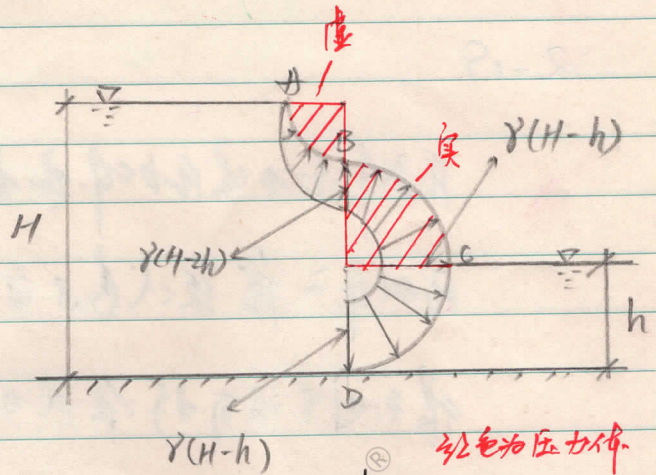 虚
A
实
B
γ(H-h)
H
γ(H-2h)
C
h
D
γ(H-h)
®
红色为压力体.